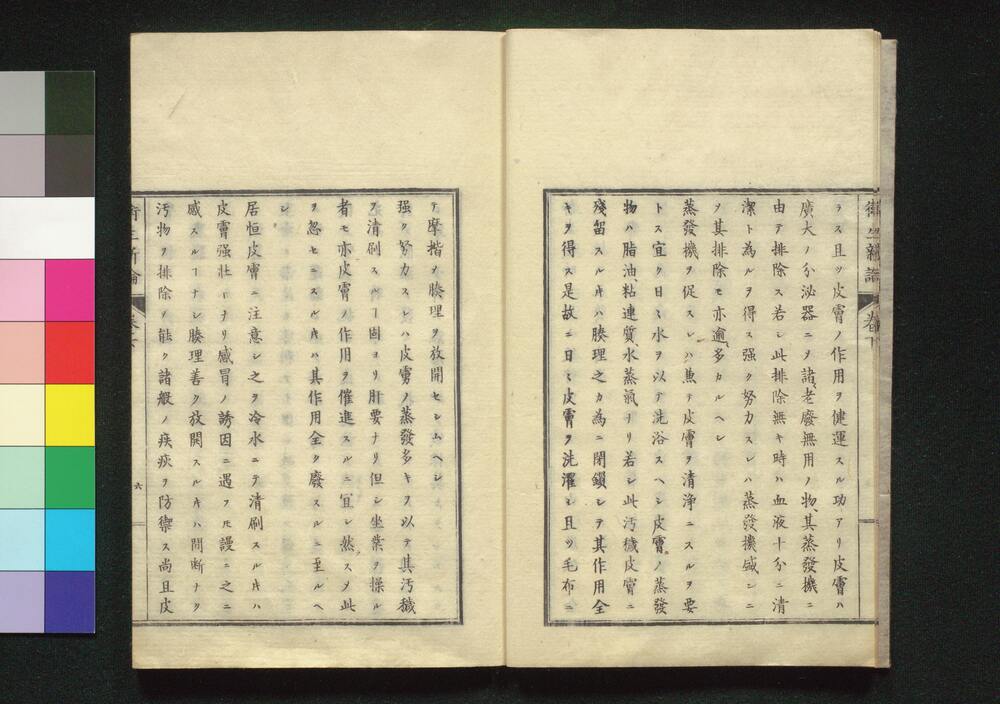 衛生新論 卷下
ラス且ツ皮膚ノ作用ヲ健運スル功アリ皮膚ハ
廣大ノ分泌器ニヲ諸老廢無用ノ物其蒸發機ニ
由テ排除ス若シ此排除無キ時ハ血液十分ニ清
潔ト為ルヲ得ス强ク努力スレハ蒸發機盛ンニ
ヲ其排除モ亦逾多カルヘシ
蒸發機ヲ促スレハ兼テ皮膚ヲ清浄ニスルヲ要
トス宜ク日々水ヲ以テ洗浴スヘシ皮膚ノ蒸發
物ハ脂油、粘連質、水蒸氣ナリ若シ此汚穢皮膚ニ
殘留スル𪜈ハ腠理之カ為ニ閉鎖シテ其作用全
キヲ得ス是故ニ日々皮膚ヲ洗濯シ且ツ毛布ニ
テ摩楷ヲ腠理ヲ放開セシムヘシ
强ク努力スレハ皮膚ノ蒸發多キヲ以テ其汚穢
ヲ清刷スルヿ固ヨリ肝要ナリ但シ坐業ヲ操ル
者モ亦皮膚ノ作用ヲ催進スルニ宜シ然スメ此
ヲ忽セニスル𪜈ハ其作用全ク廢スルニ至ルヘ
シ
居恒皮膚ニ注意シ之ヲ冷水ニテ清刷スル𪜈ハ
皮膚强壯トナリ感冒ノ誘因ニ遇フ𪜈謾ニ之ニ
感スルヿナシ腠理善ク放開スル𪜈ハ間断ナク
汚物ヲ排除ノ能ク諸般ノ疾疢ヲ防禦ス尚且皮
衛生新論 卷下
六